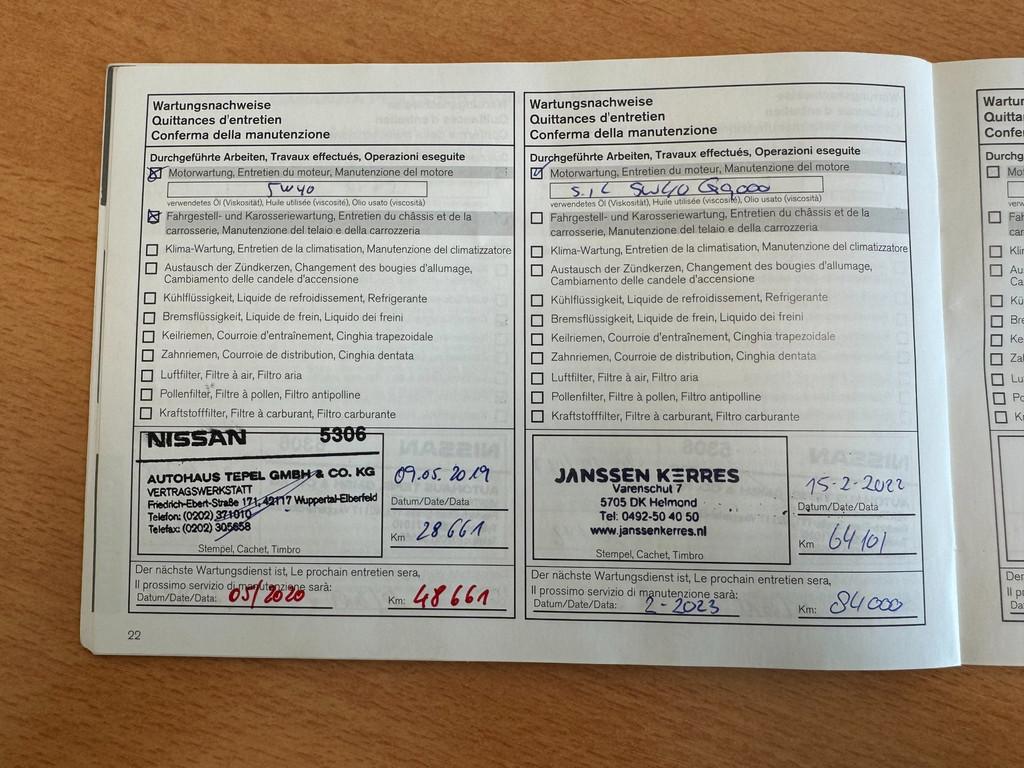 Wartungsnachweise
Quittances d'entretien
Conferma della manutenzione
Durchgeführte Arbeiten, Travaux effectués, Operazioni eseguite
Motorwartung, Entretien du moteur, Manutenzione del motore
5W40
verwendetes Öl (Viskosität), Huile utilisée (viscosité), Olio usato (viscosità)
Fahrgestell- und Karosseriewartung, Entretien du châssis et de la
carrosserie, Manutenzione del telaio e della carrozzeria
Klima-Wartung, Entretien de la climatisation, Manutenzione del climatizzatore
Austausch der Zündkerzen, Changement des bougies d'allumage,
Cambiamento delle candele d'accensione
Kühlflüssigkeit, Liquide de refroidissement, Refrigerante
Bremsflüssigkeit, Liquide de frein, Liquido dei freini
Keilriemen, Courroie d'entraînement, Cinghia trapezoidale
Zahnriemen, Courroie de distribution, Cinghia dentata
Luftfilter, Filtre à air, Filtro aria
Pollenfilter, Filtre à pollen, Filtro antipolline
Kraftstofffilter, Filtre à carburant, Filtro carburante
NISSAN 5306
AUTOHAUS TEPEL GMBH & CO. KG
VERTRAGSWERKSTATT
Friedrich-Ebert-Straße 171, 42117 Wuppertal-Elberfeld
Telefon: (0202) 371010
Telefax: (0202) 305658
Stempel, Cachet, Timbro
09.05.2019
Datum/Date/Data
Km 28661
Der nächste Wartungsdienst ist, Le prochain entretien sera,
Il prossimo servizio di manutenzione sarà:
Datum/Date/Data: 05/2020 Km: 48661
22
Wartungsnachweise
Quittances d'entretien
Conferma della manutenzione
Durchgeführte Arbeiten, Travaux effectués, Operazioni eseguite
Motorwartung, Entretien du moteur, Manutenzione del motore
5W40
verwendetes Öl (Viskosität), Huile utilisée (viscosité), Olio usato (viscosità)
Fahrgestell- und Karosseriewartung, Entretien du châssis et de la
carrosserie, Manutenzione del telaio e della carrozzeria
Klima-Wartung, Entretien de la climatisation, Manutenzione del climatizzatore
Austausch der Zündkerzen, Changement des bougies d'allumage,
Cambiamento delle candele d'accensione
Kühlflüssigkeit, Liquide de refroidissement, Refrigerante
Bremsflüssigkeit, Liquide de frein, Liquido dei freini
Keilriemen, Courroie d'entraînement, Cinghia trapezoidale
Zahnriemen, Courroie de distribution, Cinghia dentata
Luftfilter, Filtre à air, Filtro aria
Pollenfilter, Filtre à pollen, Filtro antipolline
Kraftstofffilter, Filtre à carburant, Filtro carburante
JANSSEN KERRES
Varenschut 7
5705 DK Helmond
Tel: 0492-50 40 50
www.janssenkerres.nl
Stempel, Cachet, Timbro
15-2-2022
Datum/Date/Data
Km 64101
Der nächste Wartungsdienst ist, Le prochain entretien sera,
Il prossimo servizio di manutenzione sarà:
Datum/Date/Data: 2-2023 Km: 84000